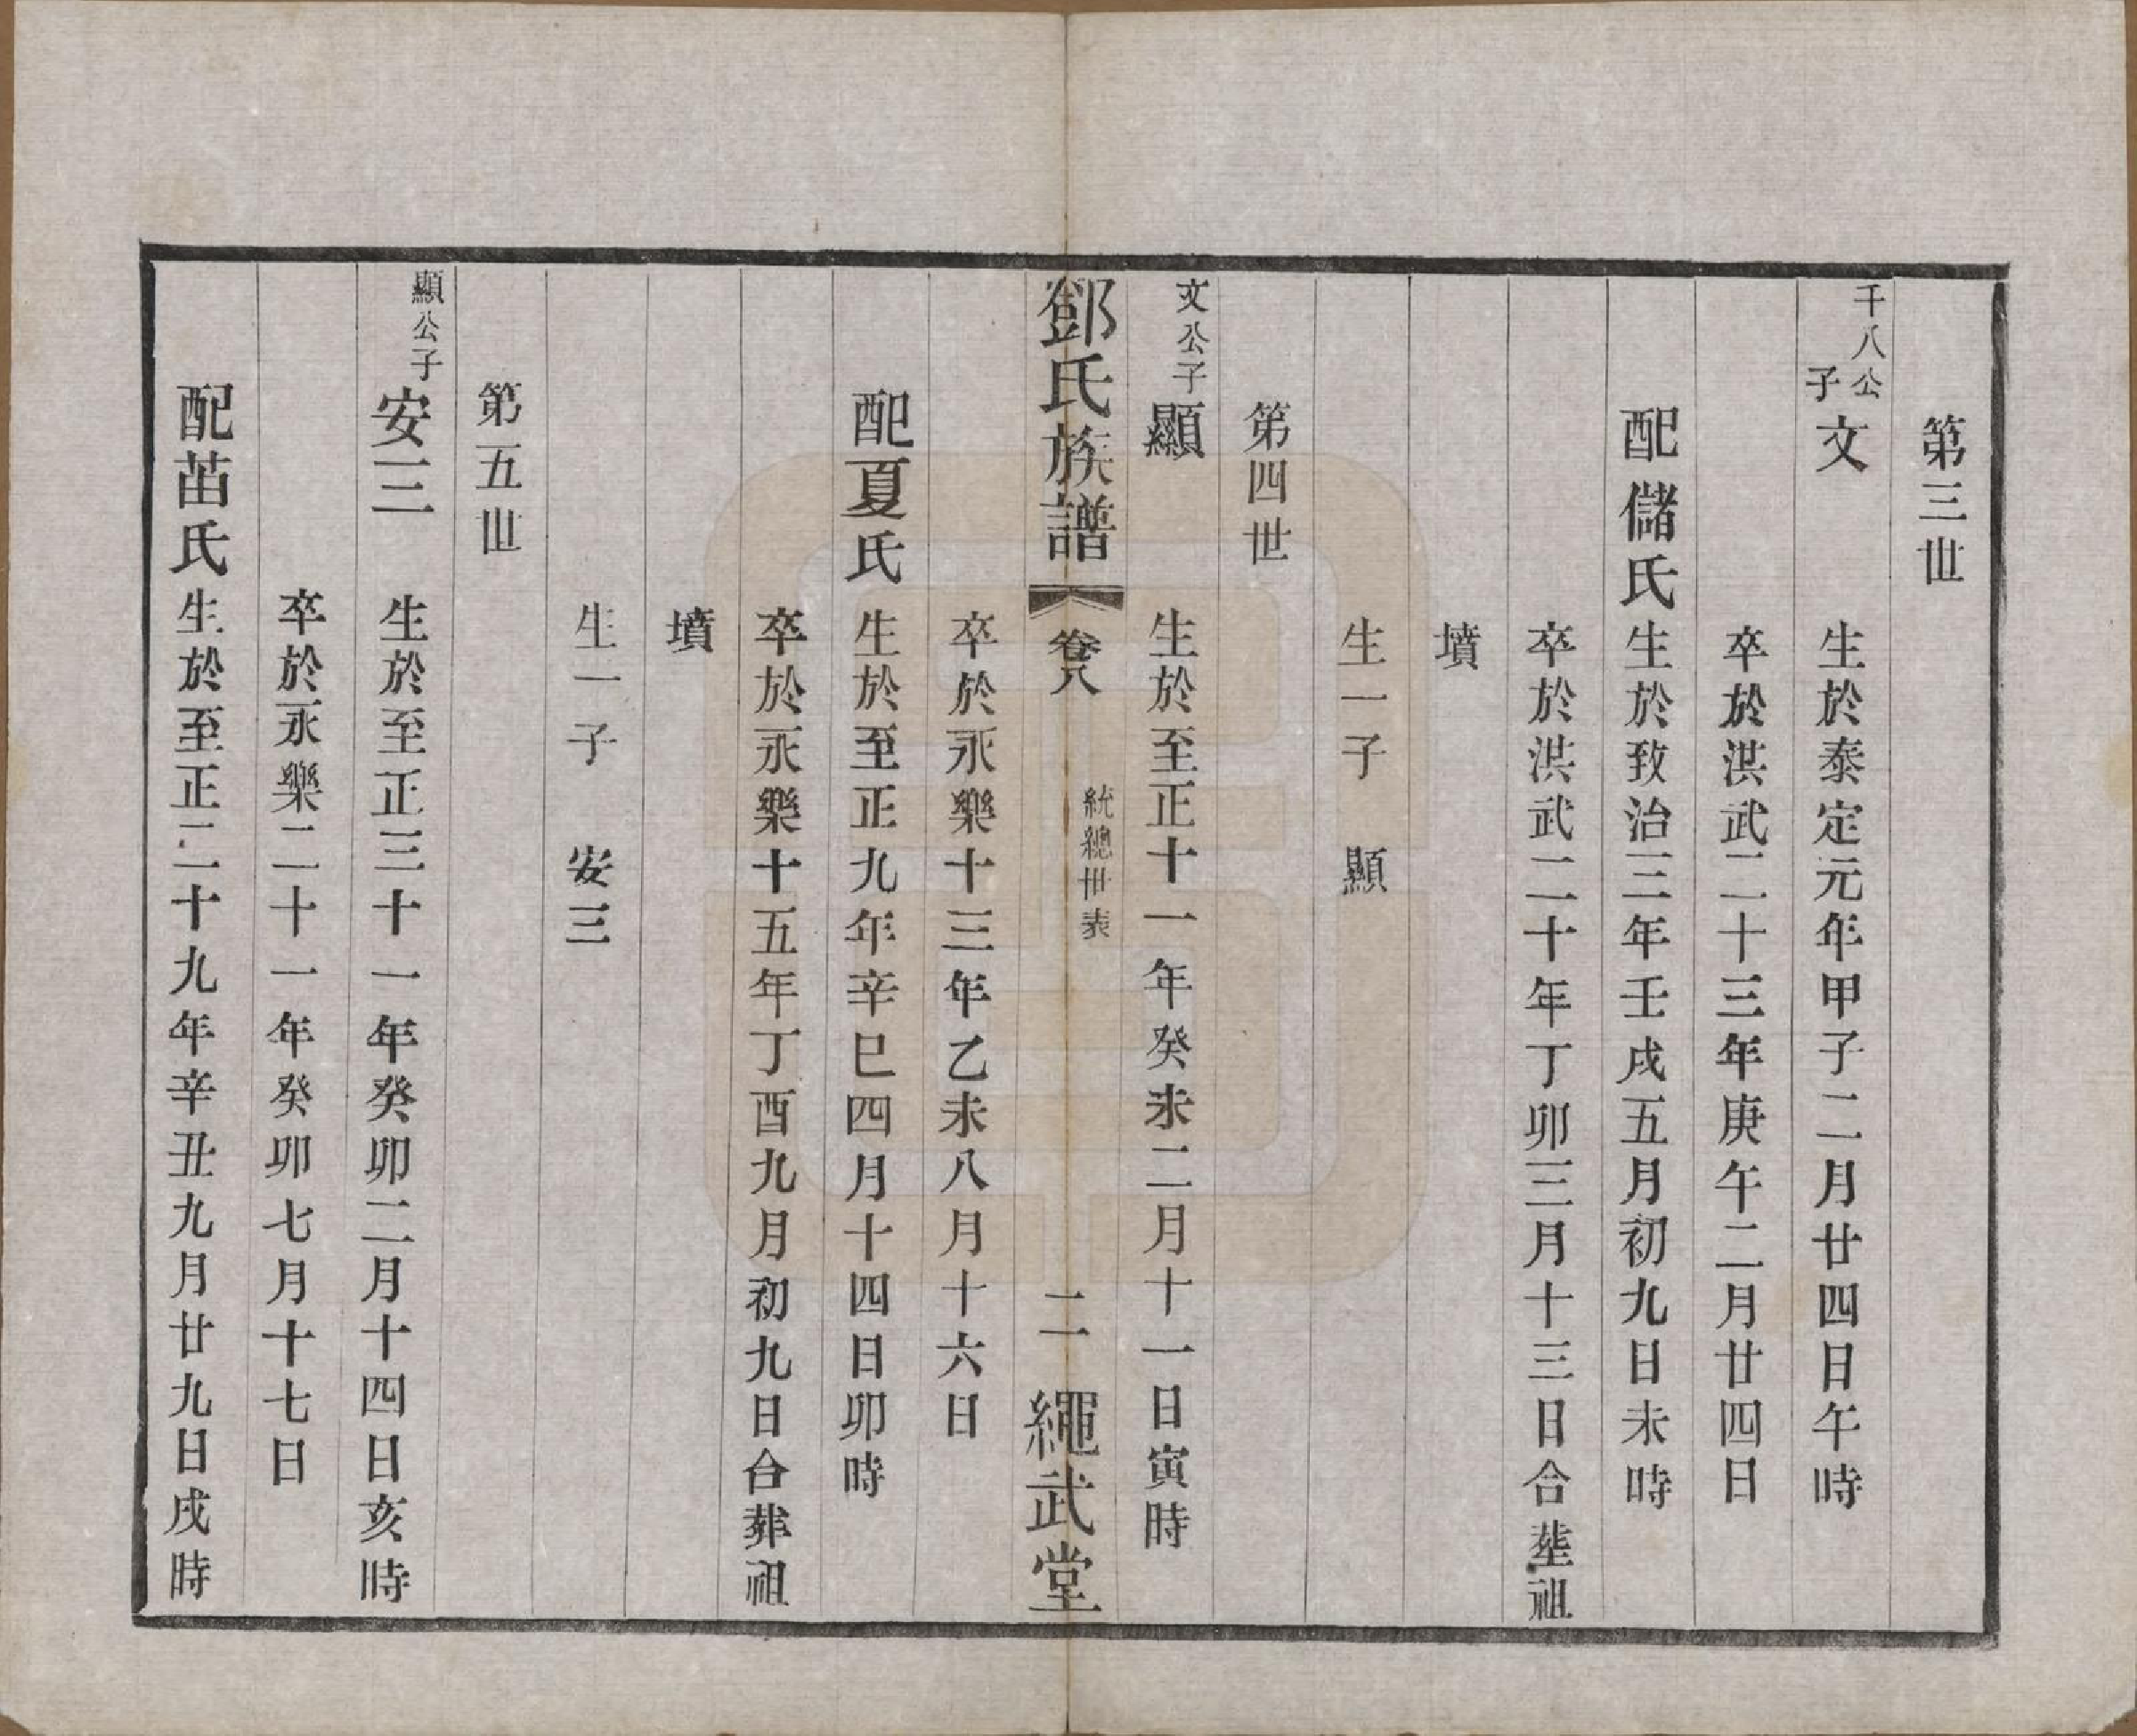 第三世
千八公子文 生於泰定元年甲子二月廿四日午時
卒於洪武二十三年庚午二月廿四日
配儲氏生於致治三年壬戌五月初九日未時
卒於洪武二十年丁卯三月十三日合塟祖
墳
生一子 顯
第四世
文公子顯 生於至正十一年癸未二月十一日寅時
鄧氏族譜 卷八 統總世表 二 繩武堂
卒於永樂十三年乙未八月十六日
配夏氏生於至正九年辛巳四月十四日卯時
卒於永樂十五年丁酉九月初九日合葬祖
墳
生一子 安三
第五世
顯公子安三 生於至正三十一年癸卯二月十四日亥時
卒於永樂二十一年癸卯七月十七日
配苗氏生於至正二十九年辛丑九月廿九日戌時